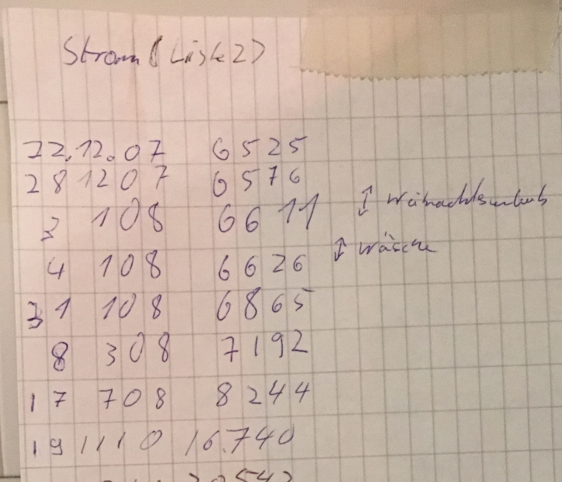 Strom (Liste 2)
22.12.07 6525
28 12 07 6576
3 1 08 6611 ↕ Weihnachtsurlaub
4 1 08 6626 ↕ Wäsche
31 1 08 6865
8 3 08 7192
17 7 08 8244
19 11 10 16.740